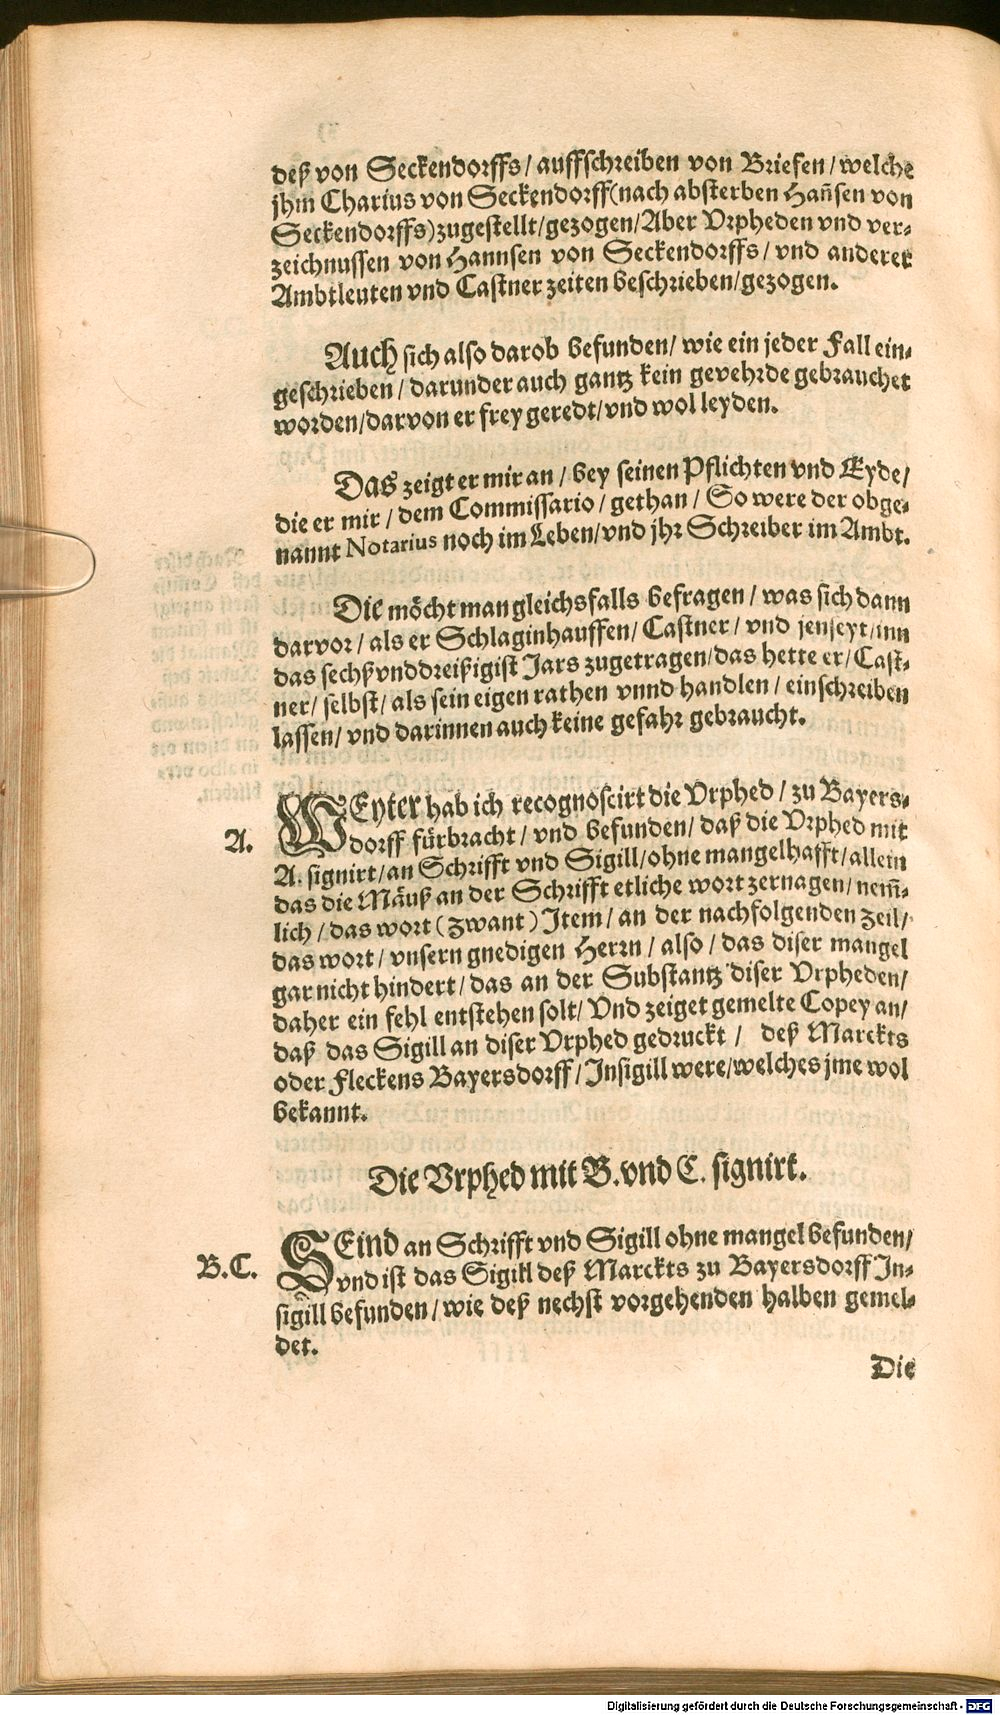 deß von Seckendorffs/ auffschreiben von Briefen/ welche
jhm Charius von Seckendorff (nach absterben Hañsen von
Seckendorffs) zugestellt/ gezogen/ Aber Vrpheden vnd ver-
zeichnussen von Hannsen von Seckendorffs/ vnd anderer
Ambtleuten vnd Castner zeiten beschrieben/ gezogen.
Auch sich also darob befunden/ wie ein jeder Fall ein-
geschrieben/ darunder auch gantz kein gevehrde gebrauchet
worden/ darvon er frey geredt/ vnd wol leyden.
Das zeigt er mir an/ bey seinen Pflichten vnd Eyde/
die er mir/ dem Commissario/ gethan/ So were der obge-
nannt Notarius noch im Leben/ vnd jhr Schreiber im Ambt.
Die möcht man gleichsfalls befragen/ was sich dann
darvor/ als er Schlaginhauffen/ Castner/ vnd jenseyt/ inn
das sechßvnddreißigist Jars zugetragen/ das hette er/ Cast-
ner/ selbst/ als sein eigen rathen vnnd handlen/ einschreiben
lassen/ vnd darinnen auch keine gefahr gebraucht.
WEyter hab ich recognoscirt die Vrphed/ zu Bayers-
A. dorff fürbracht/ vnd befunden/ daß die Vrphed mit
A. signirt/ an Schrifft vnd Sigill/ ohne mangelhafft/ allein
das die Mäuß an der Schrifft etliche wort zernagen/ nem̃-
lich/ das wort (zwant) Item/ an der nachfolgenden zeil/
das wort/ vnsern gnedigen Herrn/ also/ das diser mangel
gar nicht hindert/ das an der Substantz diser Vrpheden/
daher ein fehl entstehen solt/ Vnd zeiget gemelte Copey an/
daß das Sigill an diser Vrphed gedruckt/ deß Marckts
oder Fleckens Bayersdorff/ Insigill were/ welches jme wol
bekannt.
Die Vrphed mit B. vnd C. signirt.
SEind an Schrifft vnd Sigill ohne mangel befunden/
B. C. vnd ist das Sigill deß Marckts zu Bayersdorff In-
sigill befunden/ wie deß nechst vorgehenden halben gemel-
det.
Die
Digitalisierung gefördert durch die Deutsche Forschungsgemeinschaft - DFG